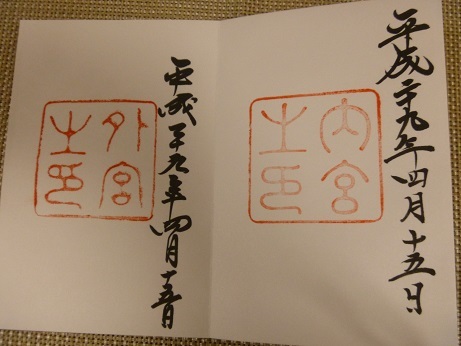 平成二十九年四月十五日
内宮
之印
平成二十九年四月十五日
外宮
之印